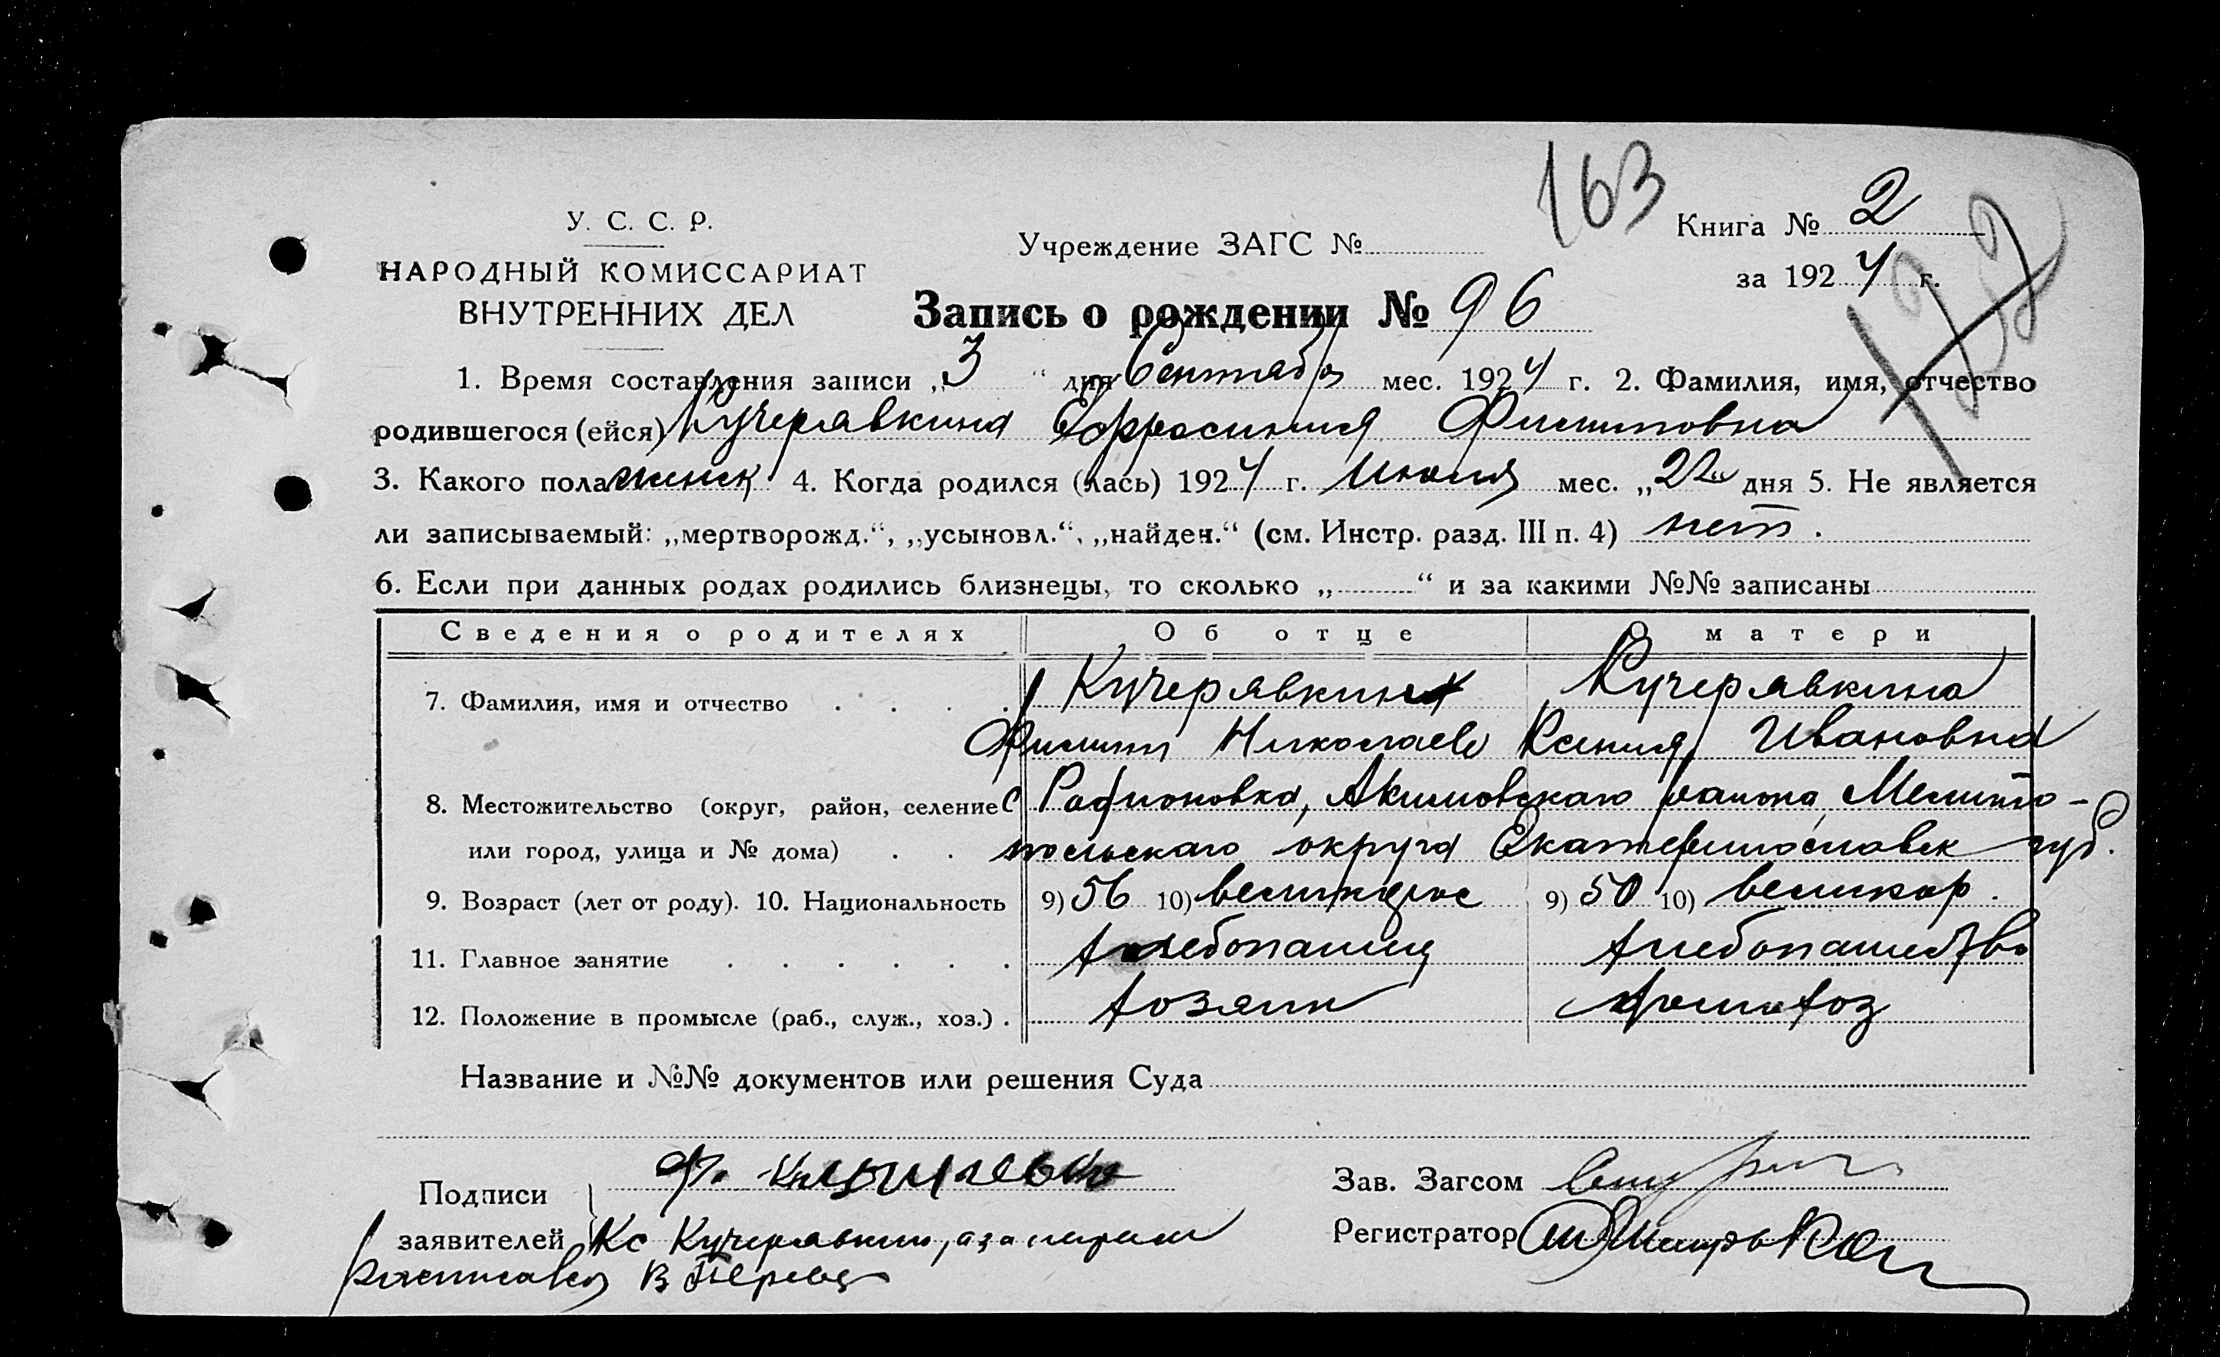 163
У. С. С. Р.
НАРОДНЫЙ КОМИССАРИАТ
ВНУТРЕННИХ ДЕЛ
Учреждение ЗАГС №
Книга № 2
за 1924 г.
Запись о рождении № 96
1. Время составления записи „3“ дня Сентября мес. 1924 г. 2. Фамилия, имя, отчество
родившегося (ейся) Кучерявкина Ефросиния Филиповна
3. Какого пола женск 4. Когда родился (лась) 1924 г. Июля мес. „22“ дня 5. Не является
ли записываемый: „мертворожд.“, „усыновл.“, „найден.“ (см. Инстр. разд. III п. 4) нет.
6. Если при данных родах родились близнецы, то сколько „ “ и за какими №№ записаны
Сведения о родителях Об отце О матери
7. Фамилия, имя и отчество Кучерявкин Кучерявкина
Филипп Николаев Ксения Ивановна
8. Местожительство (округ, район, селение с Радионовка, Акимовскаго района Мелито-
или город, улица и № дома) польскаго округа Екатеринославск губ.
9. Возраст (лет от роду). 10. Национальность 9) 56 10) великорос 9) 50 10) великор.
11. Главное занятие хлебопашец хлебопашество
12. Положение в промысле (раб., служ., хоз.) хозяин хоз
Название и №№ документов или решения Суда
Подписи Ф.
Зав. Загсом
заявителей Кс Кучерявкина, а за
Регистратор
расписався В